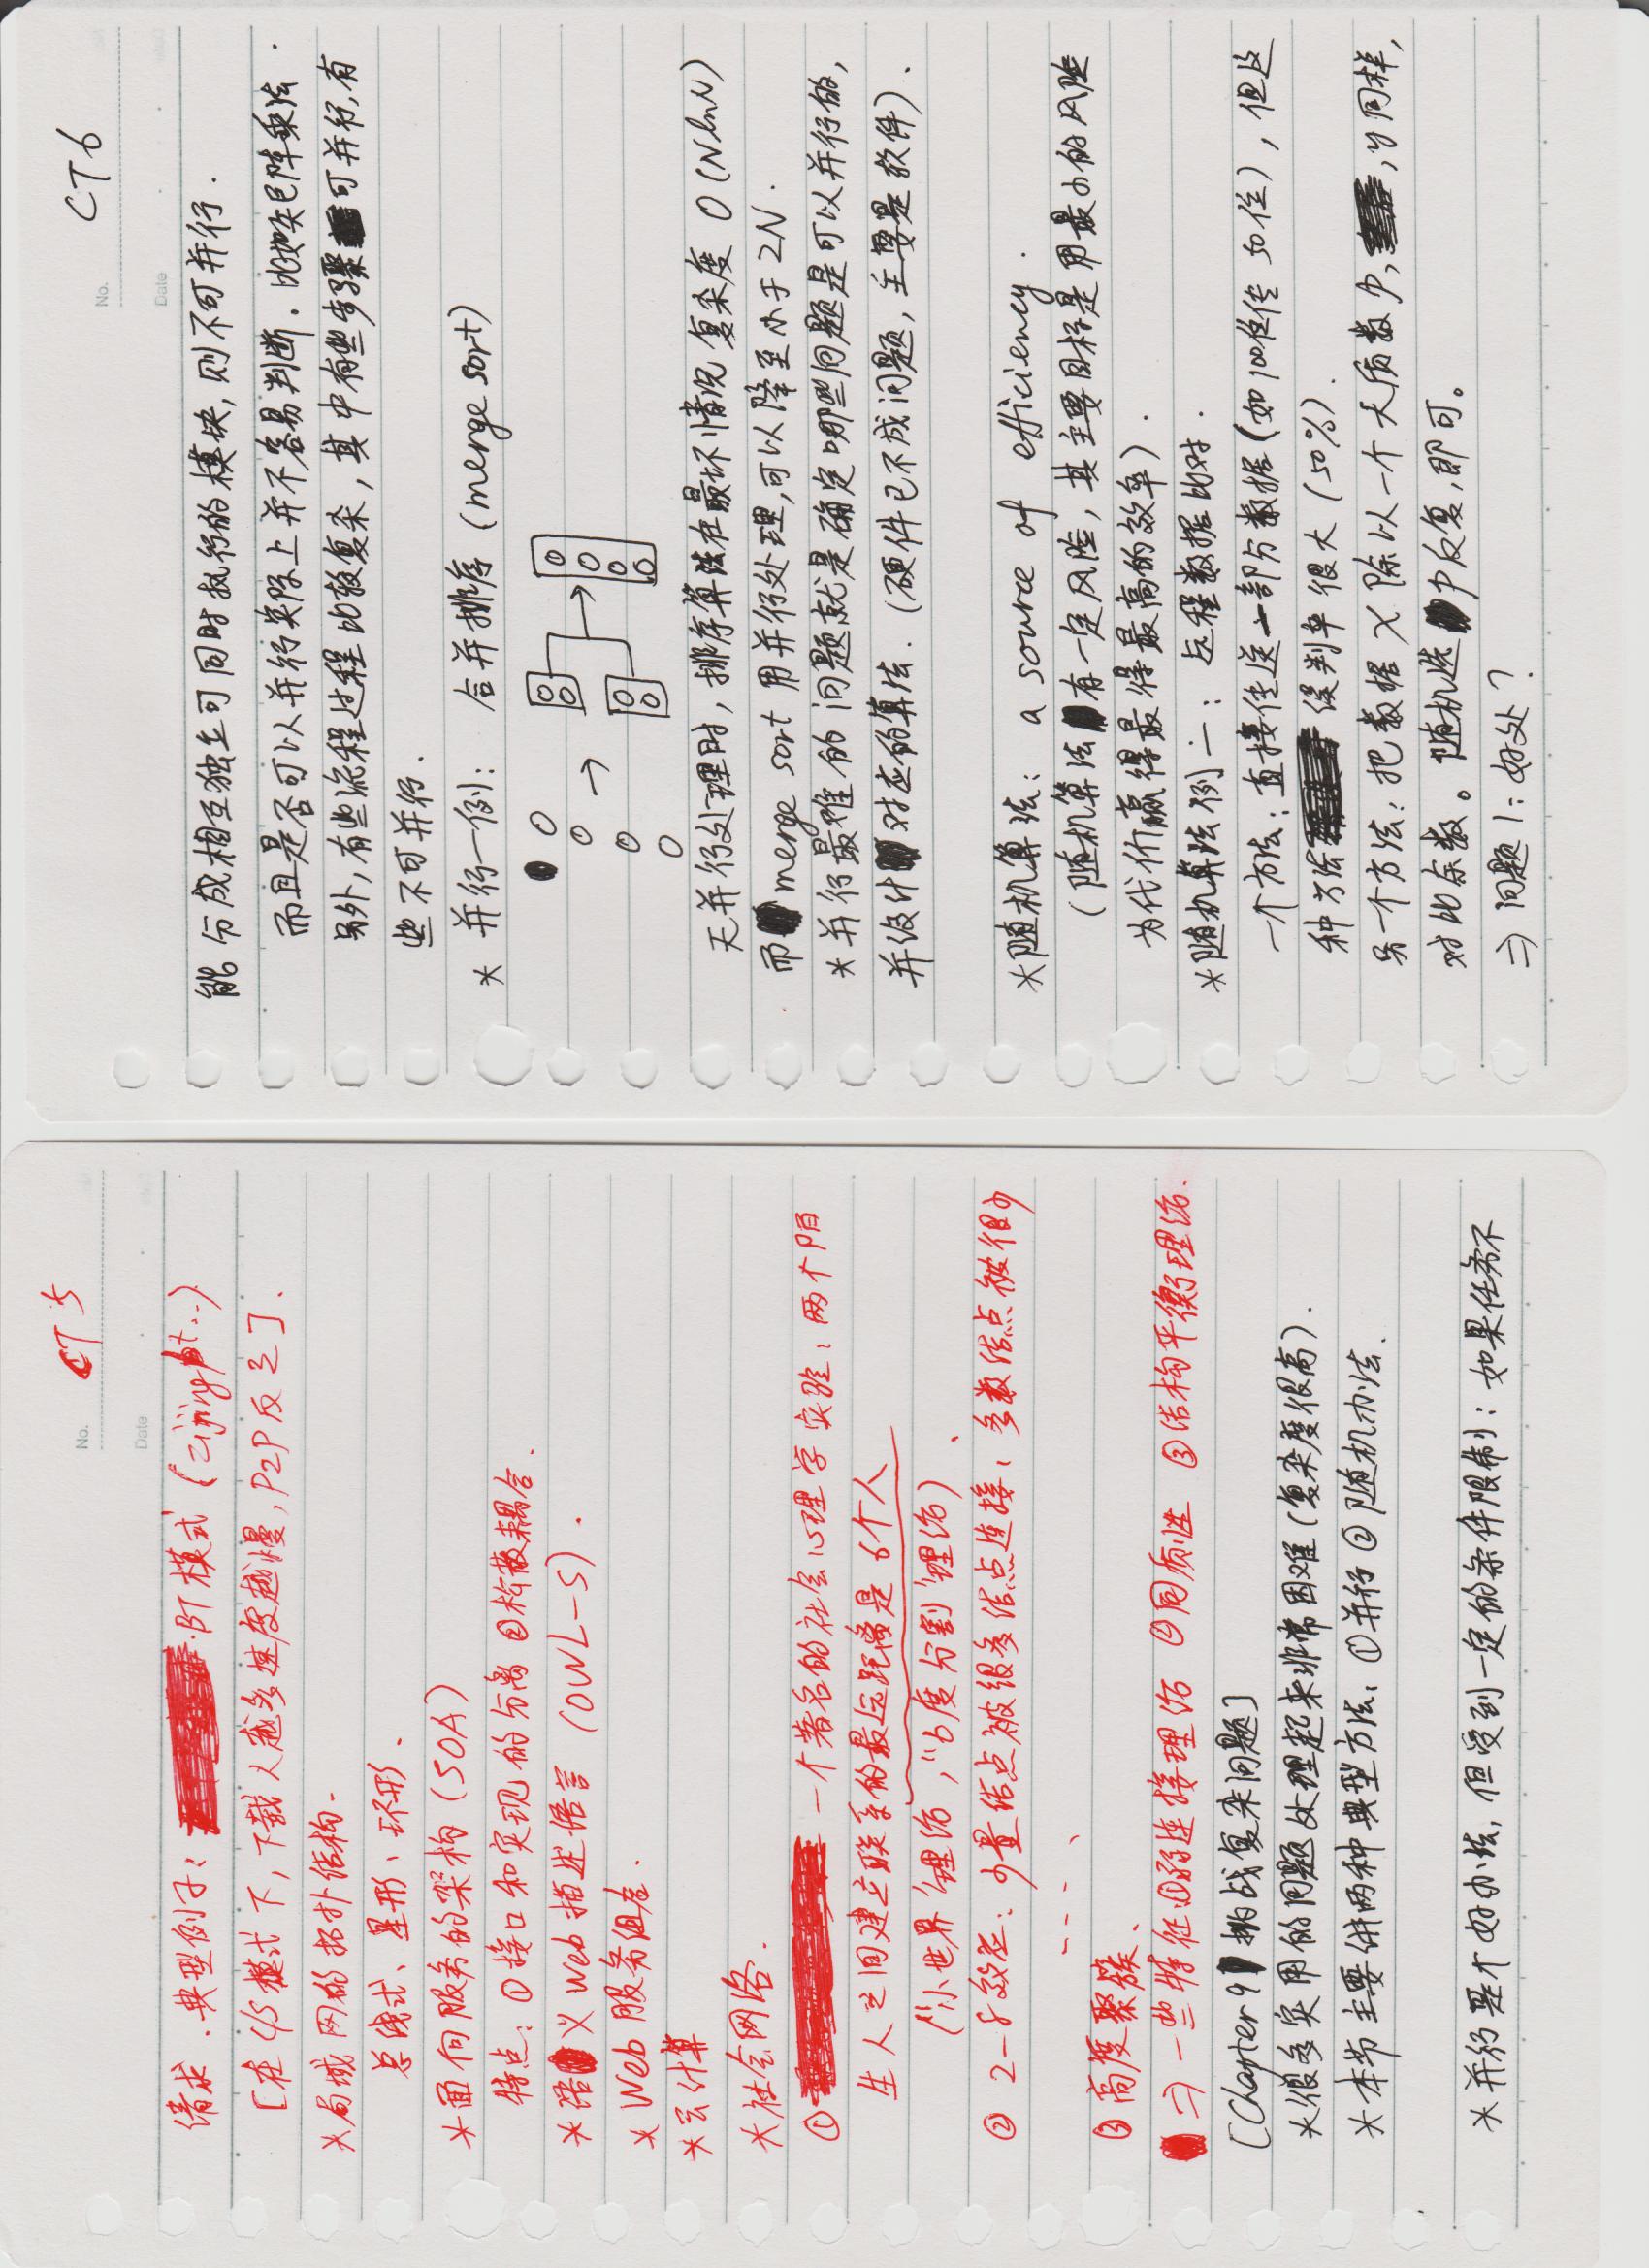 No. CT5
Date
请求.典型例子: BT模式 (zijingbt..)
[在C/S模式下,下载人越多速度越慢,P2P反之].
*局域网的拓扑结构.
总线式、星形、环形.
*面向服务的架构(SOA)
特点:①接口和实现的分离 ②松散耦合.
*语义Web描述语言 (OWL-S).
*Web服务组合.
*云计算
*社会网络.
① 一个著名的社会心理学实验:两个陌
生人之间建立联系的最远距离是6个人
("小世界"理论,"6度分割"理论).
② 2-8效应:少量结点被很多结点连接,多数结点被很少
----、
③高度聚簇、
⇒一些特征:①弱连接理论 ②同质性 ③结构平衡理论.
[Chapter 9 挑战复杂问题]
*很多实用的问题处理起来非常困难(复杂度很高).
*本节主要讲两种典型方法:①并行 ②随机办法.
*并行是个好办法,但受到一定的条件限制:如果任务不
No. CT6
Date
能分成相互独立可同时执行的模块,则不可并行.
而且是否可以并行实际上并不容易判断.比如矩阵乘法.
另外,有些流程过程比较复杂,其中有些步骤可并行,有
些不可并行.
*并行一例: 合并排序(merge sort)
无并行处理时,排序算法在最坏情况复杂度 O(NlnN)
而merge sort用并行处理,可以降至小于2N.
*并行最难的问题就是确定哪些问题是可以并行的,
并设计对应的算法.(硬件已不成问题,主要是软件).
*随机算法: a source of efficiency.
(随机算法有一定风险,其主要目标是用最小的风险
为代价赢得最得最高的效率).
*随机算法例一: 远程数据比对.
一个方法:直接传送一部分数据(如100位传50位),但这
种方法误判率很大(50%).
另一个方法:把数据x除以一个大质数p, ,y同样,
对比余数。随机选p反复,即可。
⇒问题1:好处?